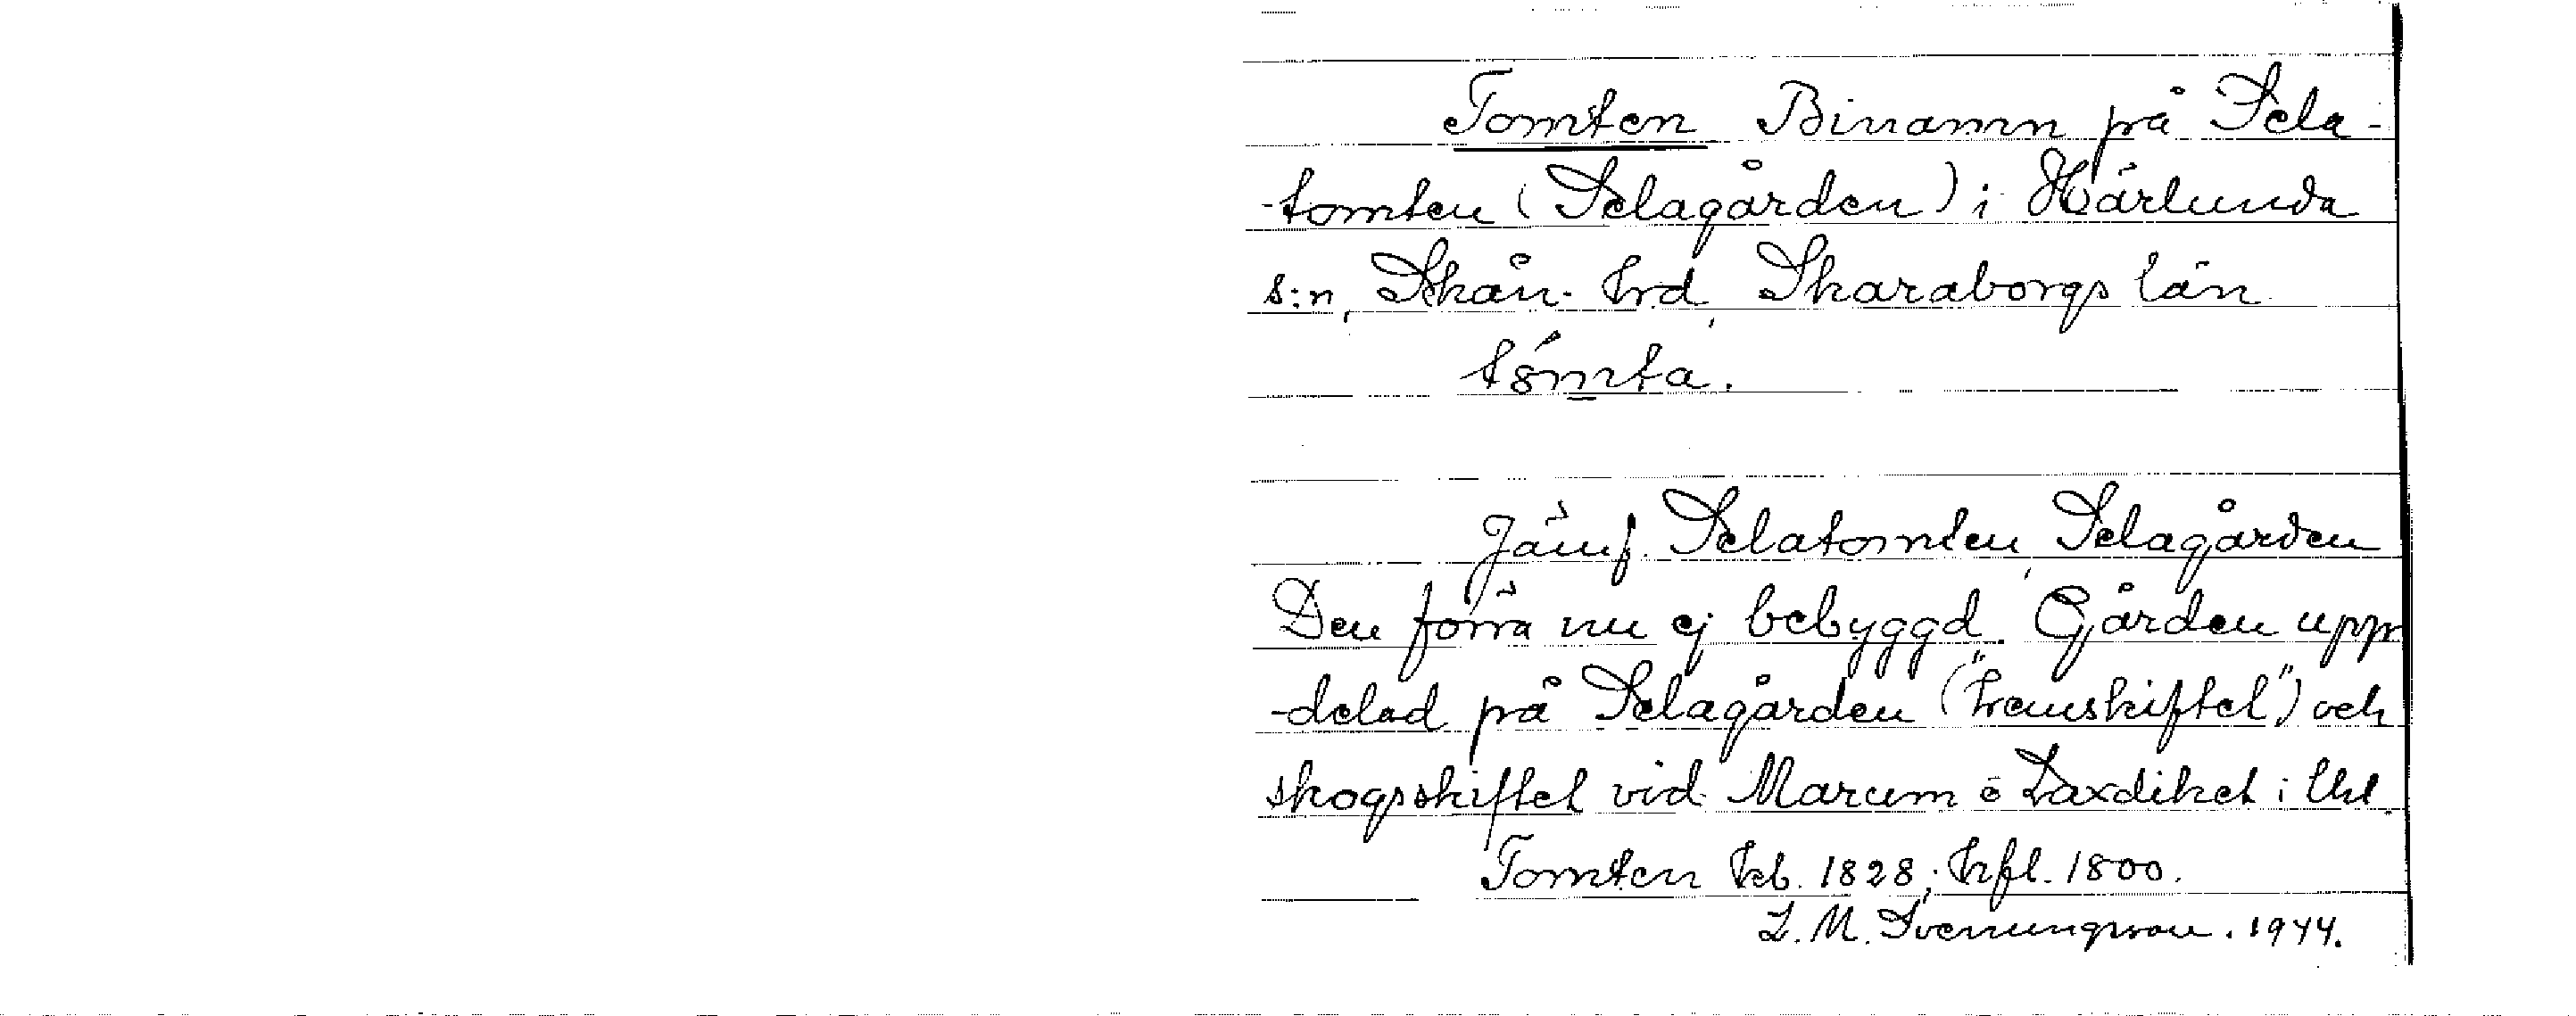 Tomten Binamn på Sela-
-tomten (Selagården) i Härlunda
s:n, Skån. hrd, Skaraborgs län
tômta.
Jämf. Selatomten, Selagården
Den förra nu ej bebyggd. Gården upp
-delad på Selagården ("hemskiftet") och
skogsskiftet vid Marum o Laxdiket i
Tomten kb. 1828; hfl. 1800.
L. M. Svenungsson. 1944.